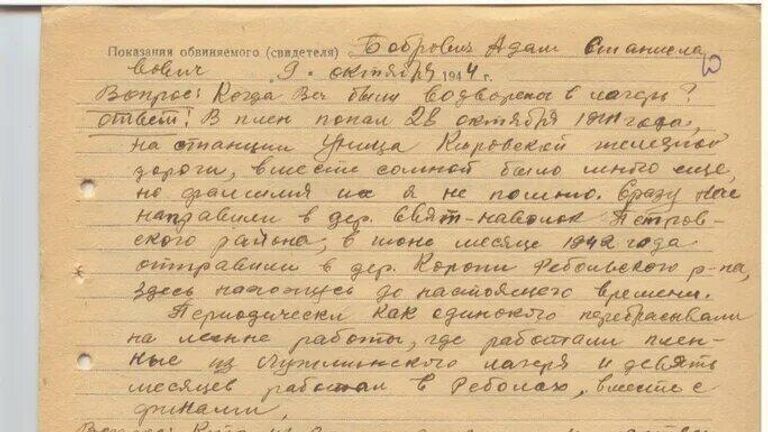 Показания обвиняемого (свидетеля) Бобрович Адам Станисла
вович 9. октября 1944 г.
Вопрос: Когда Вы были водворены в лагерь?
Ответ: В плен попал 28 октября 1941 года,
на станции Уница Кировской железной
дороги, вместе со мной было много еще,
но фамилия их я не помню. Сразу нас
направили в дер. Свят-наволок Петров-
ского района, в июне месяце 1942 года
отправили в дер. Коропи Ребольского р-на,
здесь нахожусь до настоящего времени.
Периодически как одинокого перебрасывали
на лесные работы, где работали плен-
ные из лагеря и девять
месяцев работал в Реболах, вместе с
финами,
Вопрос: